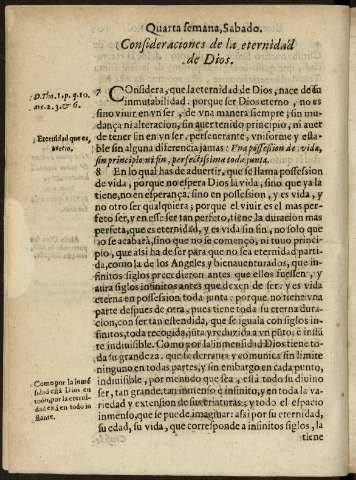 Quarta semana, Sabado.
Consideraciones de la eternidad
de Dios.
D.Tho.1.p.q.10.
art.2.3.& 6.
7 Considera, que la eternidad de Dios, nace de su
inmutabilidad. porque ser Dios eterno, no es
sino viuir en vn ser, de vna manera siempre; sin mu-
dança ni alteracion, sin auer tenido principio, ni auer
Eternidad que es,
de tener fin en vn ser, perseuerante, vniforme y esta-
ble sin alguna diferencia jamas: Vna possession de vida,
sin principio ni fin, perfectissima toda junta.
8 En lo qual has de aduertir, que se llama possession
de vida, porque no espera Dios la vida, sino que ya la
tiene, no en esperança, sino en possession, y es vida, y
no otro ser qualquiera; porque el viuir es el mas per-
feto ser, y en esse ser tan perfeto, tiene la duracion mas
perfeta, que es eternidad, y es vida sin fin, no solo que
no se acabarà, sino que no se començò, ni tuuo princi-
pio, que assi ha de ser para que no sea eternidad parti-
da, como la de los Angeles y bienauenturados, que in-
finitos siglos precedieron antes que ellos fuessen, y
aura siglos infinitos antes que dexen de ser: y es vida
eterna en possession toda junta: porque no tiene vna
parte despues de otra, pues tiene toda su eterna dura-
cion, con ser tan estendida, que se iguala con siglos in-
finitos, toda recogida, jũta y reduzida a vn pũto, è instã
te indiuisible. Como por la inmensidad Dios tiene to-
da su grandeza. que se derrama y comunica sin limite
ninguno en todas partes, y sin embargo en cada punto,
Como por la inmẽ
sidad està Dios en
todo, por la eterni-
dad està en todo in
stante.
indiuisible, por menudo que sea, està todo su diuino
ser, tan grande, tan inmenso è infinito, y en toda la va-
riedad y extension de sus criaturas; y todo el espacio
inmenso, que se puede imaginar: assi por su eternidad,
su edad, su vida, que corresponde a infinitos siglos, la
tiene